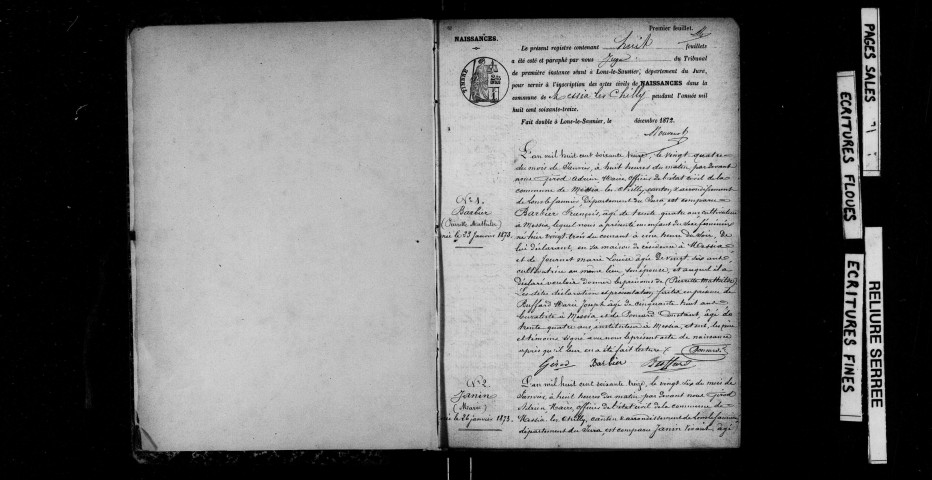 Premier feuillet.
NAISSANCES.
Le présent registre contenant huit feuillets
a été coté et paraphé par nous Juge du Tribunal
de première instance séant à Lons-le-Saunier, département du Jura,
pour servir à l'inscription des actes civils de NAISSANCES dans la
commune de Messia les Chilly pendant l'année mil
huit cent soixante-treize.
Fait double à Lons-le-Saunier, le décembre 1872.
TIMBRE
N° 1.
Barbier
(Pierrette Mathilde)
née le 23 Janvier 1873.
L'an mil huit cent soixante treize, le vingt quatre
du mois de Janvier, à huit heures du matin, par devant
nous Girod Adrien Maire, officier de l'état civil de la
commune de Messia les Chilly, canton, arrondissement
de Lons le Saunier, département du Jura, est comparu
Barbier François, âgé de trente quatre ans, cultivateur
à Messia, lequel nous a présenté un enfant du sexe féminin
né hier vingt trois du courant à cinq heures du soir, de
lui déclarant, en sa maison de résidence à Messia
et de Journet marie Louise âgée de vingt six ans,
cultivatrice au même lieu, son épouse, et auquel il a
déclaré vouloir donner les prénoms de (Pierrette Mathilde)
Les dites déclaration et présentation faites en présence de
Buffard Marie Joseph âgé de cinquante huit ans
buraliste à Messia et de Ponsard Constant, âgé de
trente quatre ans, instituteur à Messia, et ont, les père
et témoins signé avec nous le présent acte de naissance
après qu'il leur en a été fait lecture.
Girod Barbier Buffard Ponsard
N° 2
Janin
(Marie)
née le 26 janvier 1873.
L'an mil huit cent soixante treize, le vingt six du mois de
Janvier, à huit heures du matin, par devant nous Girod
Adrien Maire, officier de l'état civil de la commune de
Messia les Chilly, canton, arrondissement de Lons le Saunier,
département du Jura est comparu Janin âgé
PAGES SALES
ECRITURES FLOUES
ECRITURES FINES
RELIURE SERREE